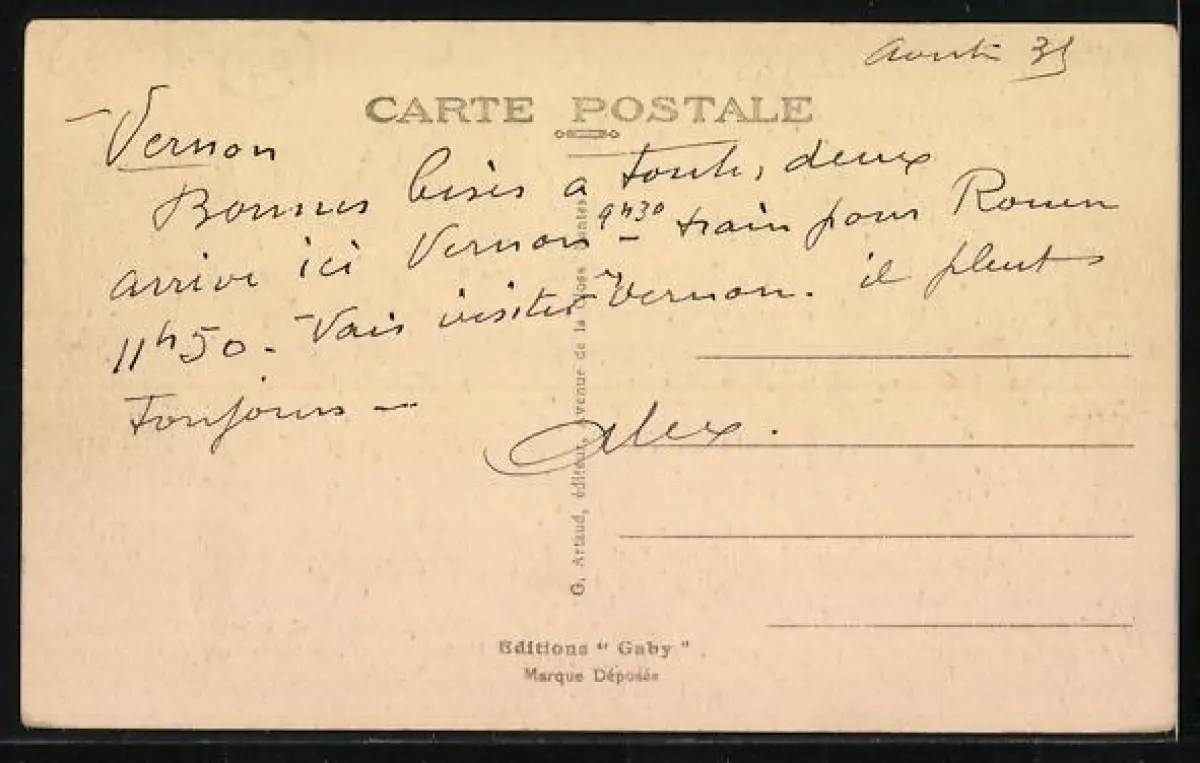 Aout 35
CARTE POSTALE
Vernon
Bonnes bises a toute, deux
arrive ici Vernon 9h30 - train pour Rouen
11h50 - Vais visiter Vernon. il pleut
Toujours -
Alex.
G. Artaud, éditeur, Avenue de la Close Nantes
Editions " Gaby "
Marque Déposée